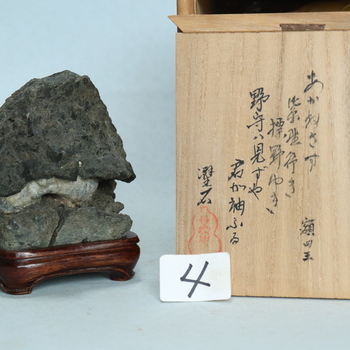 あかねさす
紫野行き
標野ゆき
野守は見ずや
君が袖ふる
額田王
4